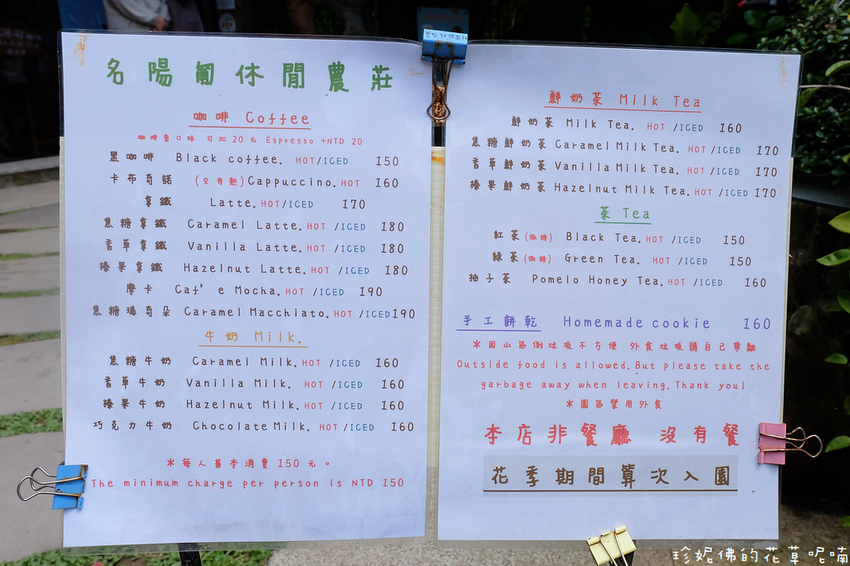 名陽匍休閒農莊
咖啡 Coffee
咖啡重口味 可加20元 Espresso +NTD 20
黑咖啡 Black coffee. HOT/ICED 150
卡布奇諾 (只有熱)Cappuccino.HOT 160
拿鐵 Latte.HOT/ICED 170
焦糖拿鐵 Caramel Latte.HOT /ICED 180
香草拿鐵 Vanilla Latte.HOT /ICED 180
榛果拿鐵 Hazelnut Latte.HOT /ICED 180
摩卡 Caf' e Mocha.HOT /ICED 190
焦糖瑪奇朵 Caramel Macchiato.HOT /ICED190
牛奶 Milk.
焦糖牛奶 Caramel Milk.HOT /ICED 160
香草牛奶 Vanilla Milk. HOT /ICED 160
榛果牛奶 Hazelnut Milk.HOT /ICED 160
巧克力牛奶 Chocolate Milk.HOT /ICED 160
＊每人基本消費150元。
The minimum charge per person is NTD 150
鮮奶茶 Milk Tea
鮮奶茶 Milk Tea. HOT /ICED 160
焦糖鮮奶茶 Caramel Milk Tea. HOT /ICED 170
香草鮮奶茶 Vanilla Milk Tea. HOT /ICED 170
榛果鮮奶茶 Hazelnut Milk Tea. HOT /ICED 170
茶 Tea
紅茶(微糖) Black Tea.HOT /ICED 150
綠茶(微糖) Green Tea. HOT /ICED 150
柚子茶 Pomelo Honey Tea.HOT /ICED 160
手工餅乾 Homemade cookie 160
＊因山區倒垃圾不方便 外食垃圾請自己帶離
Outside food is allowed.But please take the
garbage away when leaving.Thank you!
＊園區禁用外食
本店非餐廳 沒有餐
花季期間算次入園
珍妮佛的花草呢喃